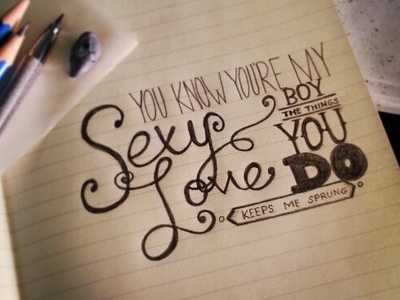 YOU KNOW YOU'RE MY
Sexy
Love
BOY
THE THINGS
YOU
DO
KEEPS ME SPRUNG